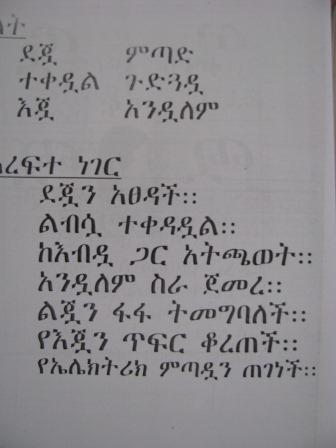 ላት
ደጇ ምጣድ
ተቀዷል ጉድጓዷ
እጇ አንዷለም
ዐረፍተ ነገር
ደጇን አፀዳች።
ልብሷ ተቀዳዷል።
ከእብዷ ጋር አትጫወት።
አንዷለም ስራ ጀመረ።
ልጇን ፋፋ ትመግባለች።
የእጇን ጥፍር ቆረጠች።
የኤሌክትሪክ ምጣዷን ጠገነች።